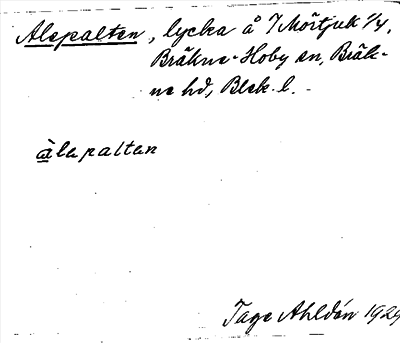 Alepalten, lycka å 7 Mörtjuk 1/4,
Bräkne-Hoby sn, Bräk-
ne hd, Blek. l.
àlepaltan
Tage Ahldén 1929